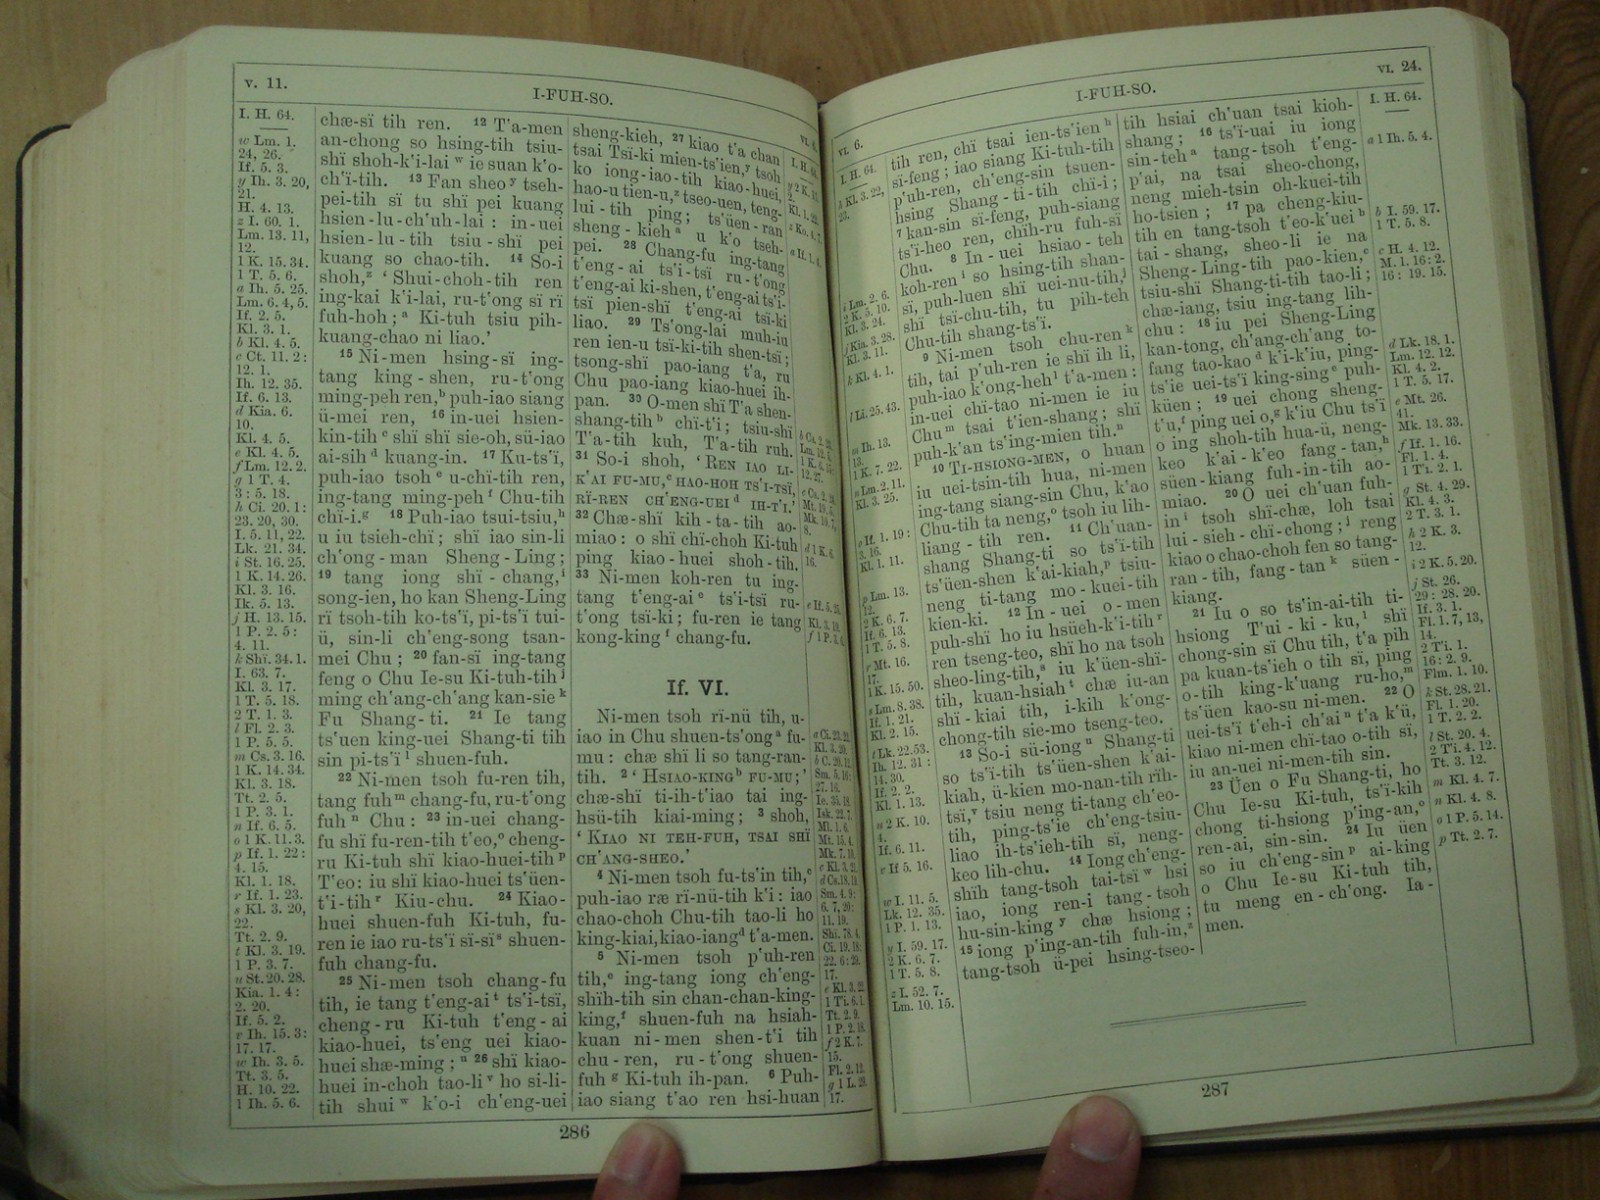 v. 11.
I-FUH-SO.
I. H. 64.
w Lm. 1.
24, 26.
If. 5. 3.
y Ih. 3. 20,
21.
H. 4. 13.
z I. 60. 1.
Lm. 13. 11,
12.
1 K. 15. 34.
1 T. 5. 6.
a Ih. 5. 25.
Lm. 6. 4, 5.
If. 2. 5.
Kl. 3. 1.
b Kl. 4. 5.
c Ct. 11. 2:
12. 1.
Ih. 12. 35.
If. 6. 13.
d Kia. 6.
10.
Kl. 4. 5.
e Kl. 4. 5.
f Lm. 12. 2.
g 1 T. 4.
3: 5. 18.
h Ci. 20. 1:
23. 20, 30.
I. 5. 11, 22.
Lk. 21. 34.
i St. 16. 25.
1 K. 14. 26.
Kl. 3. 16.
Ik. 5. 13.
j H. 13. 15.
1 P. 2. 5:
4. 11.
k Shï. 34. 1.
I. 63. 7.
Kl. 3. 17.
1 T. 5. 18.
2 T. 1. 3.
l Fl. 2. 3.
1 P. 5. 5.
m Cs. 3. 16.
1 K. 14. 34.
Kl. 3. 18.
Tt. 2. 5.
1 P. 3. 1.
n If. 6. 5.
o 1 K. 11. 3.
p If. 1. 22:
4. 15.
Kl. 1. 18.
r If. 1. 23.
s Kl. 3. 20,
22.
Tt. 2. 9.
t Kl. 3. 19.
1 P. 3. 7.
u St. 20. 28.
Kia. 1. 4:
2. 20.
If. 5. 2.
v Ih. 15. 3:
17. 17.
w Ih. 3. 5.
Tt. 3. 5.
H. 10. 22.
1 Ih. 5. 6.
chæ-sï tih ren. 12 T'a-men
an-chong so hsing-tih tsiu-
shï shoh-k'i-lai w ie suan k'o-
ch'ï-tih. 13 Fan sheo y tseh-
pei-tih sï tu shï pei kuang
hsien-lu-ch'uh-lai : in-uei
hsien-lu-tih tsiu-shï pei
kuang so chao-tih. 14 So-i
shoh,z ' Shui-choh-tih ren
ing-kai k'i-lai, ru-t'ong sï rï
fuh-hoh ; a Ki-tuh tsiu pih-
kuang-chao ni liao.'
15 Ni-men hsing-sï ing-
tang king-shen, ru-t'ong
ming-peh ren,b puh-iao siang
ü-mei ren, 16 in-uei hsien-
kin-tih c shï shï sie-oh, sü-iao
ai-sih d kuang-in. 17 Ku-ts'ï,
puh-iao tsoh e u-chï-tih ren,
ing-tang ming-peh f Chu-tih
chï-i.g 18 Puh-iao tsui-tsiu,h
u iu tsieh-chï ; shï iao sin-li
ch'ong-man Sheng-Ling ;
19 tang iong shï-chang,i
song-ien, ho kan Sheng-Ling
rï tsoh-tih ko-ts'ï, pi-ts'ï tui-
ü, sin-li ch'eng-song tsan-
mei Chu ; 20 fan-sï ing-tang
feng o Chu Ie-su Ki-tuh-tih j
ming ch'ang-ch'ang kan-sie k
Fu Shang-ti. 21 Ie tang
ts'uen king-uei Shang-ti tih
sin pi-ts'ï l shuen-fuh.
22 Ni-men tsoh fu-ren tih,
tang fuh m chang-fu, ru-t'ong
fuh n Chu : 23 in-uei chang-
fu shï fu-ren-tih t'eo,o cheng-
ru Ki-tuh shï kiao-huei-tih p
T'eo: iu shï kiao-huei ts'üen-
t'i-tih r Kiu-chu. 24 Kiao-
huei shuen-fuh Ki-tuh, fu-
ren ie iao ru-ts'ï sï-sï s shuen-
fuh chang-fu.
25 Ni-men tsoh chang-fu
tih, ie tang t'eng-ai t ts'i-tsï,
cheng-ru Ki-tuh t'eng-ai
kiao-huei, ts'eng uei kiao-
huei shæ-ming ; u 26 shï kiao-
huei in-choh tao-li v ho si-li-
tih shui w k'o-i ch'eng-uei
sheng-kieh, 27 kiao t'a chan
tsai Tsï-ki mien-ts'ien,y tsoh
ko iong-iao-tih kiao-huei,
hao-u tien-u,z tseo-uen, teng-
lui-tih ping ; ts'üen-ran
sheng-kieh a u k'o tseh-
pei. 28 Chang-fu ing-tang
t'eng-ai ts'i-tsï ru-t'ong
t'eng-ai ki-shen, t'eng-ai ts'i-
tsï pien-shï t'eng-ai tsï-ki
liao. 29 Ts'ong-lai muh-iu
ren ien-u tsï-ki-tih shen-tsï ;
tsong-shï pao-iang t'a, ru
Chu pao-iang kiao-huei ih-
pan. 30 O-men shï T'a shen-
shang-tih b chï-t'i ; tsiu-shï
T'a-tih kuh, T'a-tih ruh.
31 So-i shoh, ' REN IAO LI-
K'AI FU-MU,c HAO-HOH TS'I-TSÏ,
RÏ-REN CH'ENG-UEI d IH-T'I.'
32 Chæ-shï kih-ta-tih ao-
miao : o shï chï-choh Ki-tuh
ping kiao-huei shoh-tih.
33 Ni-men koh-ren tu ing-
tang t'eng-ai e ts'i-tsï ru-
t'ong tsï-ki ; fu-ren ie tang
kong-king f chang-fu.
If. VI.
Ni-men tsoh rï-nü tih, u-
iao in Chu shuen-ts'ong a fu-
mu : chæ shï li so tang-ran-
tih. 2 ' HSIAO-KING b FU-MU ;'
chæ-shï ti-ih-t'iao tai ing-
hsü-tih kiai-ming ; 3 shoh,
' KIAO NI TEH-FUH, TSAI SHÏ
CH'ANG-SHEO.'
4 Ni-men tsoh fu-ts'in tih,c
puh-iao ræ rï-nü-tih k'i : iao
chao-choh Chu-tih tao-li ho
king-kiai, kiao-iang d t'a-men.
5 Ni-men tsoh p'uh-ren
tih,e ing-tang iong ch'eng-
shïh-tih sin chan-chan-king-
king,f shuen-fuh na hsiah-
kuan ni-men shen-t'i tih
chu-ren, ru-t'ong shuen-
fuh g Ki-tuh ih-pan. 6 Puh-
iao siang t'ao ren hsi-huan
286
vi. 6.
I-FUH-SO.
vi. 24.
I. H. 64.
h Kl. 3. 22,
23.
i Lm. 2. 6.
2 K. 5. 10.
Kl. 3. 24.
j Kia. 3. 28.
Kl. 3. 11.
k Kl. 4. 1.
l Li. 25. 43.
m Ih. 13.
13.
1 K. 7. 22.
n Lm. 2. 11.
Kl. 3. 25.
o If. 1. 19:
3. 16.
Kl. 1. 11.
p Lm. 13.
12.
2 K. 6. 7.
If. 6. 13.
1 T. 5. 8.
r Mt. 16.
17.
1 K. 15. 50.
s Lm. 8. 38.
If. 1. 21.
Kl. 2. 15.
t Lk. 22. 53.
Ih. 12. 31:
14. 30.
If. 2. 2.
Kl. 1. 13.
u 2 K. 10.
4.
If. 6. 11.
v If 5. 16.
w I. 11. 5.
Lk. 12. 35.
1 P. 1. 13.
y I. 59. 17.
2 K. 6. 7.
1 T. 5. 8.
z I. 52. 7.
Lm. 10. 15.
tih ren, chï tsai ien-ts'ien h
sï-feng ; iao siang Ki-tuh-tih
p'uh-ren, ch'eng-sin tsuen-
hsing Shang-ti-tih chï-i ;
7 kan-sin sï-feng, puh-siang
ts'ï-heo ren, chïh-ru fuh-sï
Chu. 8 In-uei hsiao-teh
koh-ren i so hsing-tih shan-
sï, puh-luen shï uei-nu-tih,j
shï tsï-chu-tih, tu pih-teh
Chu-tih shang-ts'ï.
9 Ni-men tsoh chu-ren k
tih, tai p'uh-ren ie shï ih li,
puh-iao k'ong-heh l t'a-men :
in-uei chï-tao ni-men ie iu
Chu m tsai t'ien-shang ; shï
puh-k'an ts'ing-mien tih.n
10 TI-HSIONG-MEN, o huan
iu uei-tsin-tih hua, ni-men
ing-tang siang-sin Chu, k'ao
Chu-tih ta neng,o tsoh iu lih-
liang-tih ren. 11 Ch'uan-
shang Shang-ti so ts'ï-tih
ts'üen-shen k'ai-kiah,p tsiu-
neng ti-tang mo-kuei-tih
kien-ki. 12 In-uei o-men
puh-shï ho iu hsüeh-k'i-tih r
ren tseng-teo, shï ho na tsoh
sheo-ling-tih,s iu k'üen-shï-
tih, kuan-hsiah t chæ iu-an
shï-kiai tih, i-kih k'ong-
chong-tih sie-mo tseng-teo.
13 So-i sü-iong u Shang-ti
so ts'ï-tih ts'üen-shen k'ai-
kiah, ü-kien mo-nan-tih rïh-
tsï,v tsiu neng ti-tang ch'eo-
tih, ping-ts'ie ch'eng-tsiu-
liao ih-ts'ieh-tih sï, neng-
keo lih-chu. 14 Iong ch'eng-
shïh tang-tsoh tai-tsï w hsi
iao, iong ren-i tang-tsoh
hu-sin-king y chæ hsiong ;
15 iong p'ing-an-tih fuh-in,z
tang-tsoh ü-pei hsing-tseo-
tih hsiai ch'uan tsai kioh-
shang ; 16 ts'ï-uai iu iong
sin-teh a tang-tsoh t'eng-
p'ai, na tsai sheo-chong,
neng mieh-tsin oh-kuei-tih
ho-tsien ; 17 pa cheng-kiu-
tih en tang-tsoh t'eo-k'uei b
tai-shang, sheo-li ie na
Sheng-Ling-tih pao-kien,c
tsiu-shï Shang-ti-tih tao-li ;
chæ-iang, tsiu ing-tang lih-
chu : 18 iu pei Sheng-Ling
kan-tong, ch'ang-ch'ang to-
fang tao-kao d k'i-k'iu, ping-
ts'ie uei-ts'ï king-sing e puh-
küen ; 19 uei chong sheng-
t'u,f ping uei o,g k'iu Chu ts'ï
o ing shoh-tih hua-ü, neng-
keo k'ai-k'eo fang-tan,h
süen-kiang fuh-in-tih ao-
miao. 20 O uei ch'uan fuh-
in i tsoh shï-chæ, loh tsai
lui-sieh-chï-chong ; j reng
kiao o chao-choh fen so tang-
ran-tih, fang-tan k süen-
kiang.
21 Iu o so ts'in-ai-tih ti-
hsiong T'ui-ki-ku,l shï
chong-sin sï Chu tih, t'a pih
pa kuan-ts'ieh o tih sï, ping
o-tih king-k'uang ru-ho,m
ts'üen kao-su ni-men. 22 O
uei-ts'ï t'eh-i ch'ai n t'a k'ü,
kiao ni-men chï-tao o-tih sï,
iu an-uei ni-men-tih sin.
23 Üen o Fu Shang-ti, ho
Chu Ie-su Ki-tuh, ts'ï-kih
chong ti-hsiong p'ing-an,o
ren-ai, sin-sin. 24 Iu üen
so iu ch'eng-sin p ai-king
o Chu Ie-su Ki-tuh tih,
tu meng en-ch'ong. Ia-
men.
I. H. 64.
a 1 Ih. 5. 4.
b I. 59. 17.
1 T. 5. 8.
c H. 4. 12.
M. 1. 16: 2.
16: 19. 15.
d Lk. 18. 1.
Lm. 12. 12.
Kl. 4. 2.
1 T. 5. 17.
e Mt. 26.
41.
Mk. 13. 33.
f If. 1. 16.
Fl. 1. 4.
1 Ti. 2. 1.
g St. 4. 29.
Kl. 4. 3.
2 T. 3. 1.
h 2 K. 3.
12.
i 2 K. 5. 20.
j St. 26.
29: 28. 20.
If. 3. 1.
Fl. 1. 7, 13,
14.
2 Ti. 1.
16: 2. 9.
Flm. 1. 10.
k St. 28. 21.
Fl. 1. 20.
1 T. 2. 2.
l St. 20. 4.
2 Ti. 4. 12.
Tt. 3. 12.
m Kl. 4. 7.
n Kl. 4. 8.
o 1 P. 5. 14.
p Tt. 2. 7.
287